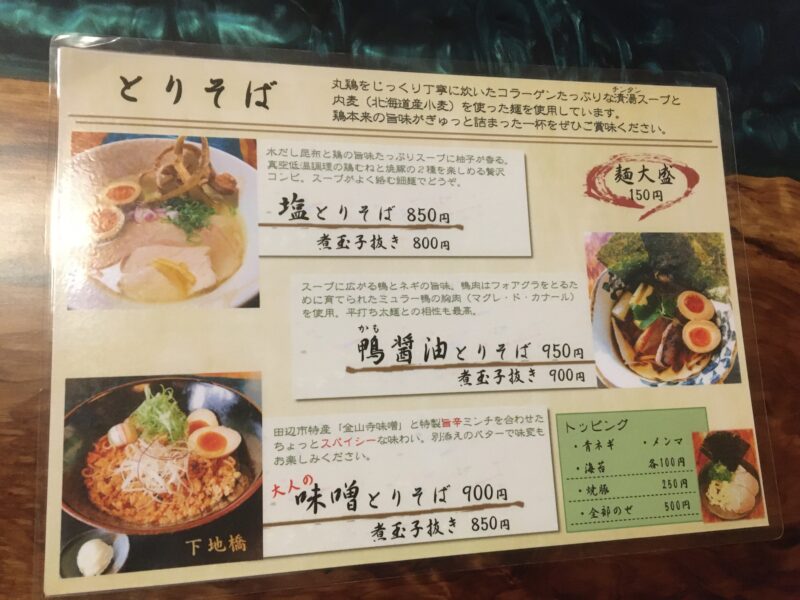 とりそば
丸鶏をじっくり丁寧に炊いたコラーゲンたっぷりな清湯スープと
チンタン
内麦（北海道産小麦）を使った麺を使用しています。
鶏本来の旨味がぎゅっと詰まった一杯をぜひご賞味ください。
水だし昆布と鶏の旨味たっぷりスープに柚子が香る。
真空低温調理の鶏むねと焼豚の２種を楽しめる贅沢
コンビ。スープがよく絡む細麺でどうぞ。
塩とりそば 850円
煮玉子抜き 800円
麺大盛
150円
スープに広がる鴨とネギの旨味。鴨肉はフォアグラをとるた
めに育てられたミュラー鴨の胸肉（マグレ・ド・カナール）
を使用。平打ち太麺との相性も最高。
かも
鴨醤油とりそば 950円
煮玉子抜き 900円
田辺市特産「金山寺味噌」と特製旨辛ミンチを合わせた
ちょっとスパイシーな味わい。別添えのバターで味変も
お楽しみください。
大人の
味噌とりそば 900円
煮玉子抜き 850円
トッピング
・青ネギ ・メンマ
・海苔 各100円
・焼豚 250円
・全部のせ 500円
下地橋